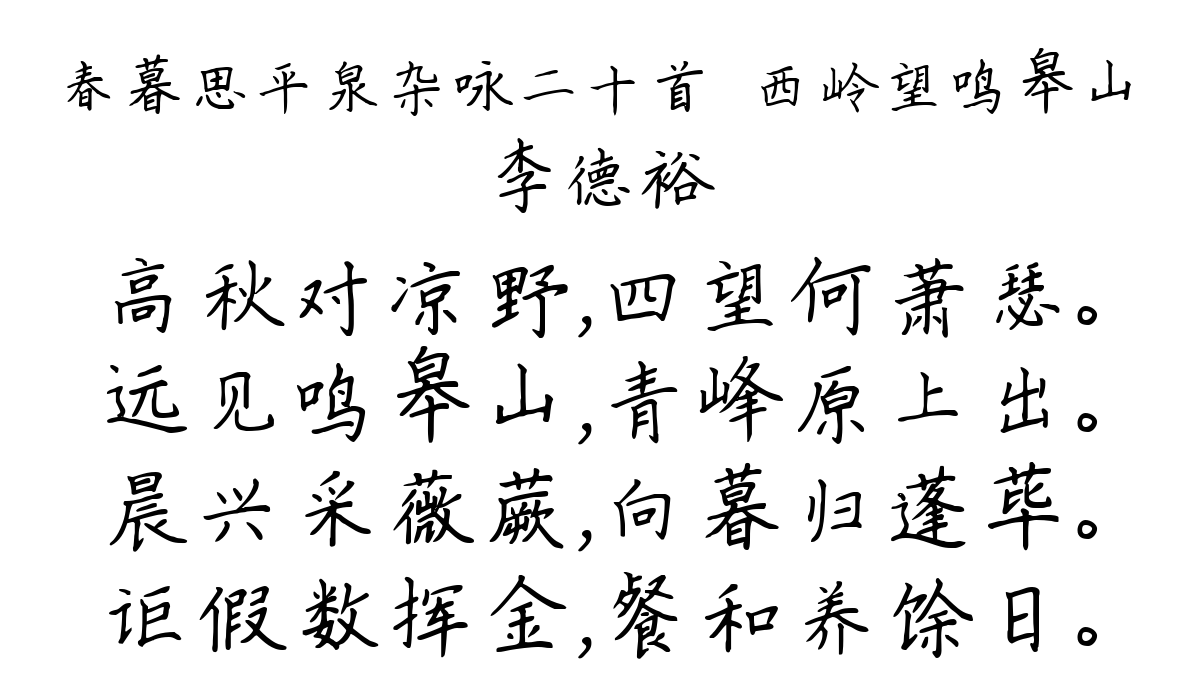 春暮思平泉杂咏二十首 西岭望鸣皋山
李德裕
高秋对凉野,四望何萧瑟。
远见鸣皋山,青峰原上出。
晨兴采薇蕨,向暮归蓬荜。
讵假数挥金,餐和养馀日。